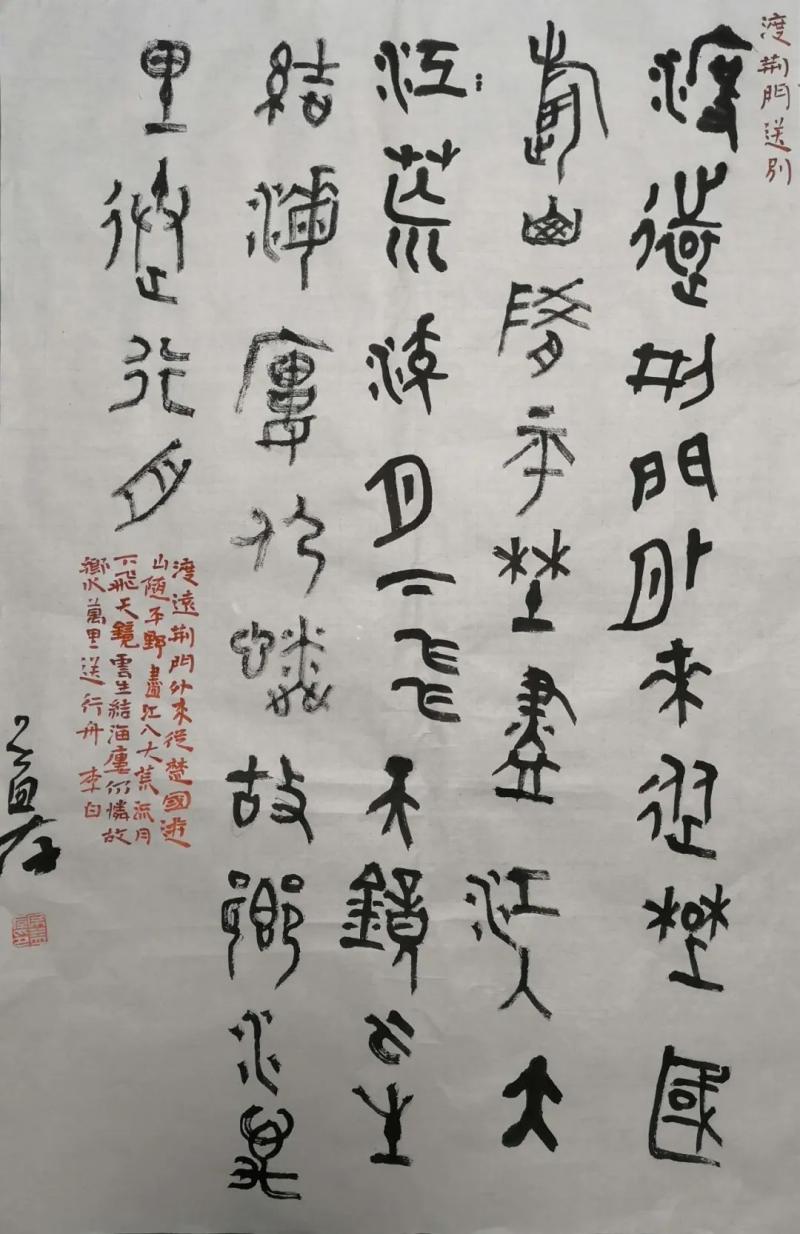 渡荆門送別
渡遠荆門外來從楚國
遊山隨平埜盡江入大
江荒流月下飛天鏡雲生
結海廔仍憐故鄉水萬
里送行舟
渡遠荆門外來從楚國遊
山隨平野盡江入大荒流月
下飛天鏡雲生結海廔仍憐故
鄉水萬里送行舟 李白